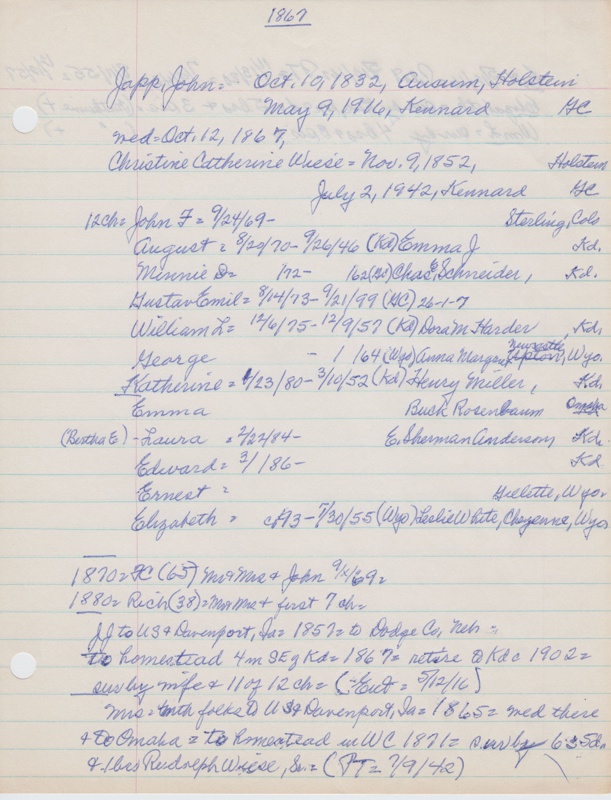 1867
Japp, John = Oct. 10, 1832, Holstein
May 9, 1916, Kennard GC
wed = Oct. 12, 1867,
Christine Catherine Wiese = Nov. 9, 1852, Holstein
July 2, 1942, Kennard GC
12ch = John F = 9/24/69 - Sterling, Colo
August = 8/20/70 - 9/26/46 (Kd) Emma J Kd.
Minnie D = 1/72 - 1/62 Chas. E. Schneider, Kd.
Gustav Emil = 8/14/73 - 9/21/99 (GC) 26-1-7
William L = 12/6/75 - 12/9/57 (Kd) Dora M Harder, Kd.
George - 1/64 (Wyo) Anna Margaret Newcastle, Wyo.
Katherine = 1/23/80 - 3/10/52 (Kd) Henry Miller, Kd.
Emma Buck Rosenbaum Omaha
(Bertha E) - Laura = 2/22/84 - E. Sherman Anderson Kd.
Edward = 3/1/86 - Kd.
Ernest = Gillette, Wyo.
Elizabeth = c/93 - 7/30/55 (Wyo) Leslie White, Cheyenne, Wyo
1870 = (65) Mr & Mrs & John 9/ /69 =
1880 = Rich (38) = Mr Mrs & first 7 ch =
JJ to US & Davenport, Ia = 1857 = to Dodge Co, Neb =
to homestead 4 m SE of Kd = 1867 = retire to Kd c 1902 =
surv by wife & 11 of 12 ch = (Ent = 5/12/16)
Mrs = with folks to US & Davenport, Ia = 1865 = wed there
& to Omaha = to homestead in WC 1871 = surv by 6 s 5 da
& 1 bro Rudolph Wiese, Sr. = (PT = 7/9/42)